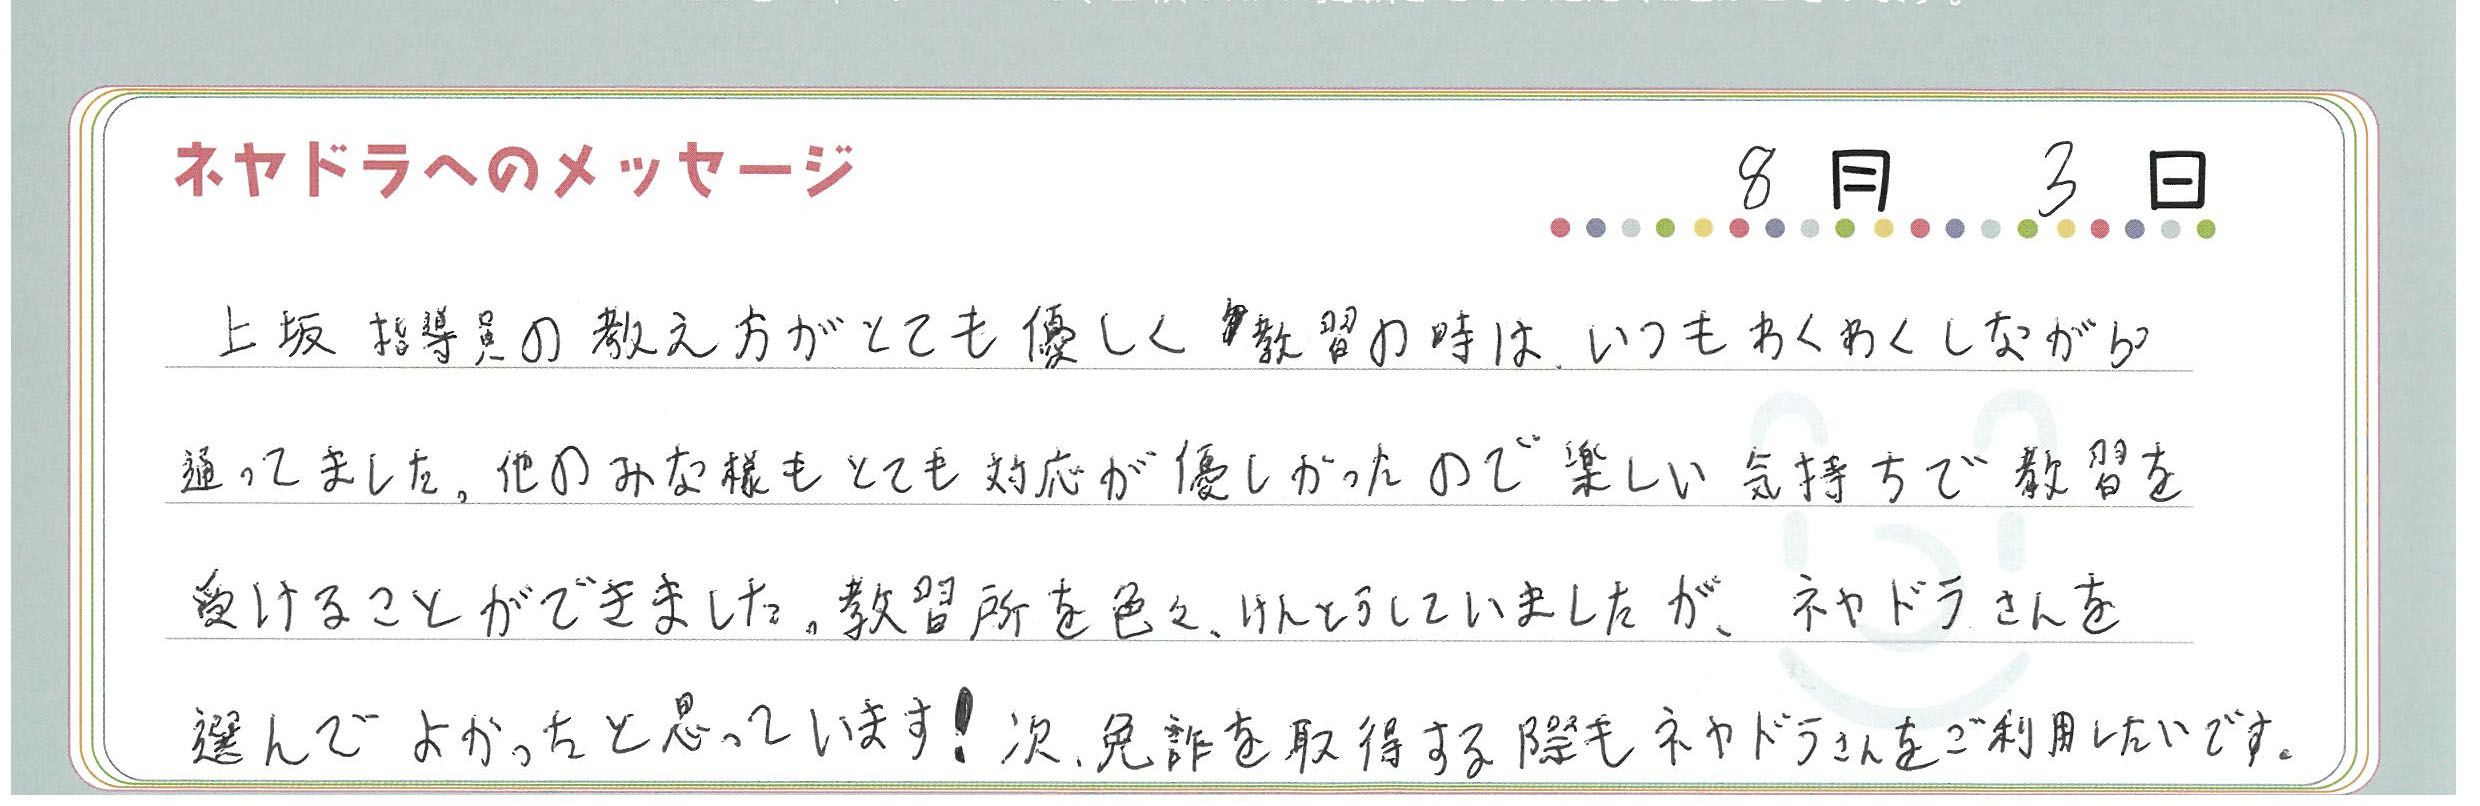 ネヤドラへのメッセージ
8月 3日
上坂指導員の教え方がとても優しく教習の時は、いつもわくわくしながら
通ってました。他のみな様もとても対応が優しかったので楽しい気持ちで教習を
受けることができました。教習所を色々、けんとうしていましたが、ネヤドラさんを
選んでよかったと思っています!次、免許を取得する際もネヤドラさんをご利用したいです。